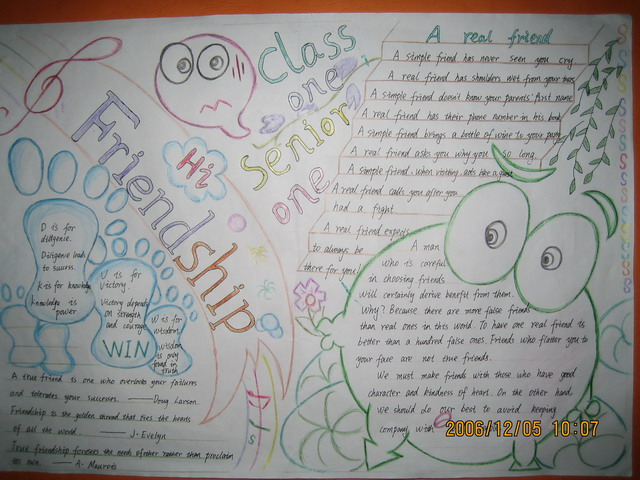 Class
one
Senior
one
Hi
Friendship
A real friend
A simple friend has never seen you cry
A real friend has shoulders wet from your tears
A simple friend doesn't know your parents' first name
A real friend has their phone number in his book
A simple friend brings a bottle of wine to your party
A real friend asks you why you so long.
A simple friend, when visiting acts like a guest
A real friend calls you after you
had a fight
A real friend expects
to always be
there for you!
A man
who is careful
in choosing friends
will certainly derive benefit from them.
Why? Because there are more false friends
than real ones in this world. To have one real friend is
better than a hundred false ones. Friends who flatter you to
your face are not true friends.
We must make friends with those who have good
character and kindness of heart. On the other hand,
we should do our best to avoid keeping
company with
D is for
diligence.
Diligence leads
to success.
K is for knowledge
knowledge is
power
V is for
Victory.
Victory depends
on strength
and courage
W is for
wisdom
wisdom
is only
found in
truth
WIN
A true friend is one who overlooks your failures
and tolerates your successes. ——Doug Larson.
Friendship is the golden thread that ties the hearts
of all the world. ——J. Evelyn
True friendship foresees the needs of other rather than proclaim
its own. —— A. Maurois
2006/12/05 10:07